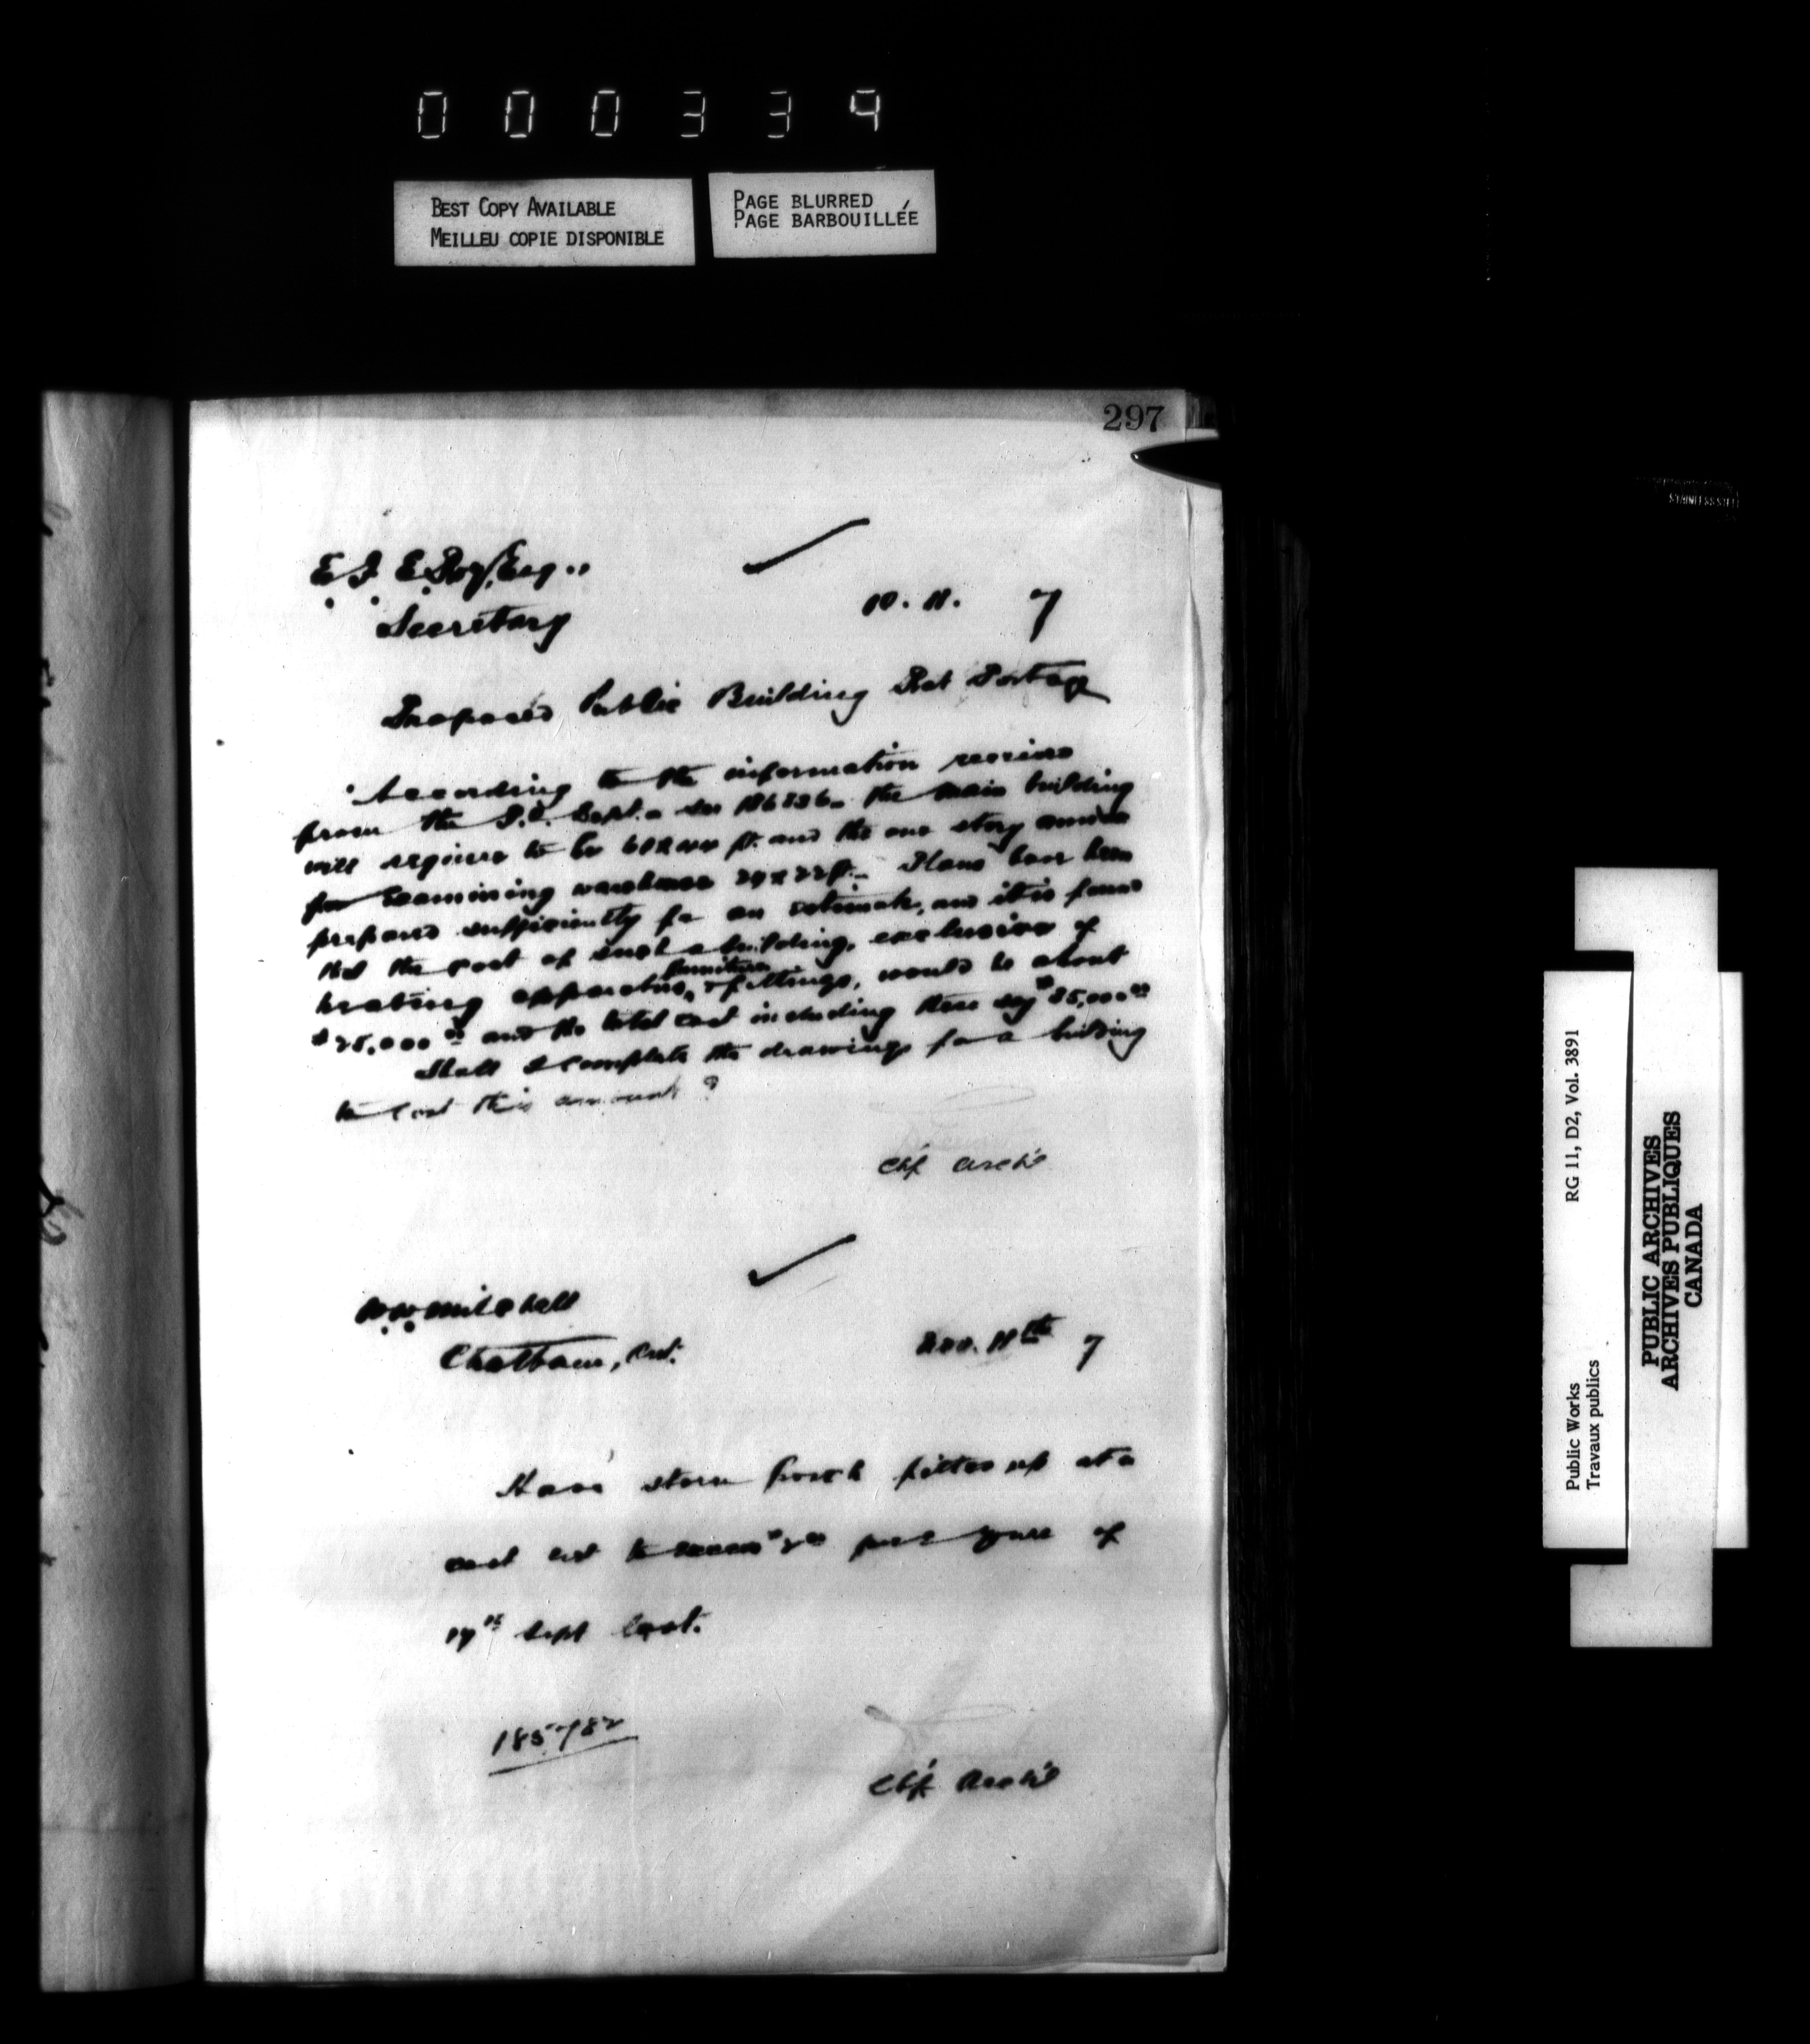 000339
BEST COPY AVAILABLE
MEILLEU COPIE DISPONIBLE
PAGE BLURRED
PAGE BARBOUILLÉE
297
E. F. E. Roy, Esq.,
Secretary
10. 11. 7
Proposed Public Building Rat Portage
According to the information received
from the P.O. Dept. 186826 the main building
will require to be ft. and the one story annex
for Examining warehouse ft. Plans have been
prepared sufficiently for an estimate, and it is found
that the cost of such a building, exclusive of
heating apparatus, furniture & fittings, would be about
and the total cost including these say
Shall I complete the drawings for a building
to cost this amount?
Chf Archt
W. W. Mitchell
Chatham, Ont.
Nov. 11th 7
Have storm porch fitted up at a
cost not to exceed per yours of
17th Sept last.
185782
Chf Archt
Public Works
Travaux publics
RG 11, D2, Vol. 3891
PUBLIC ARCHIVES
ARCHIVES PUBLIQUES
CANADA
STAINLESS STEEL